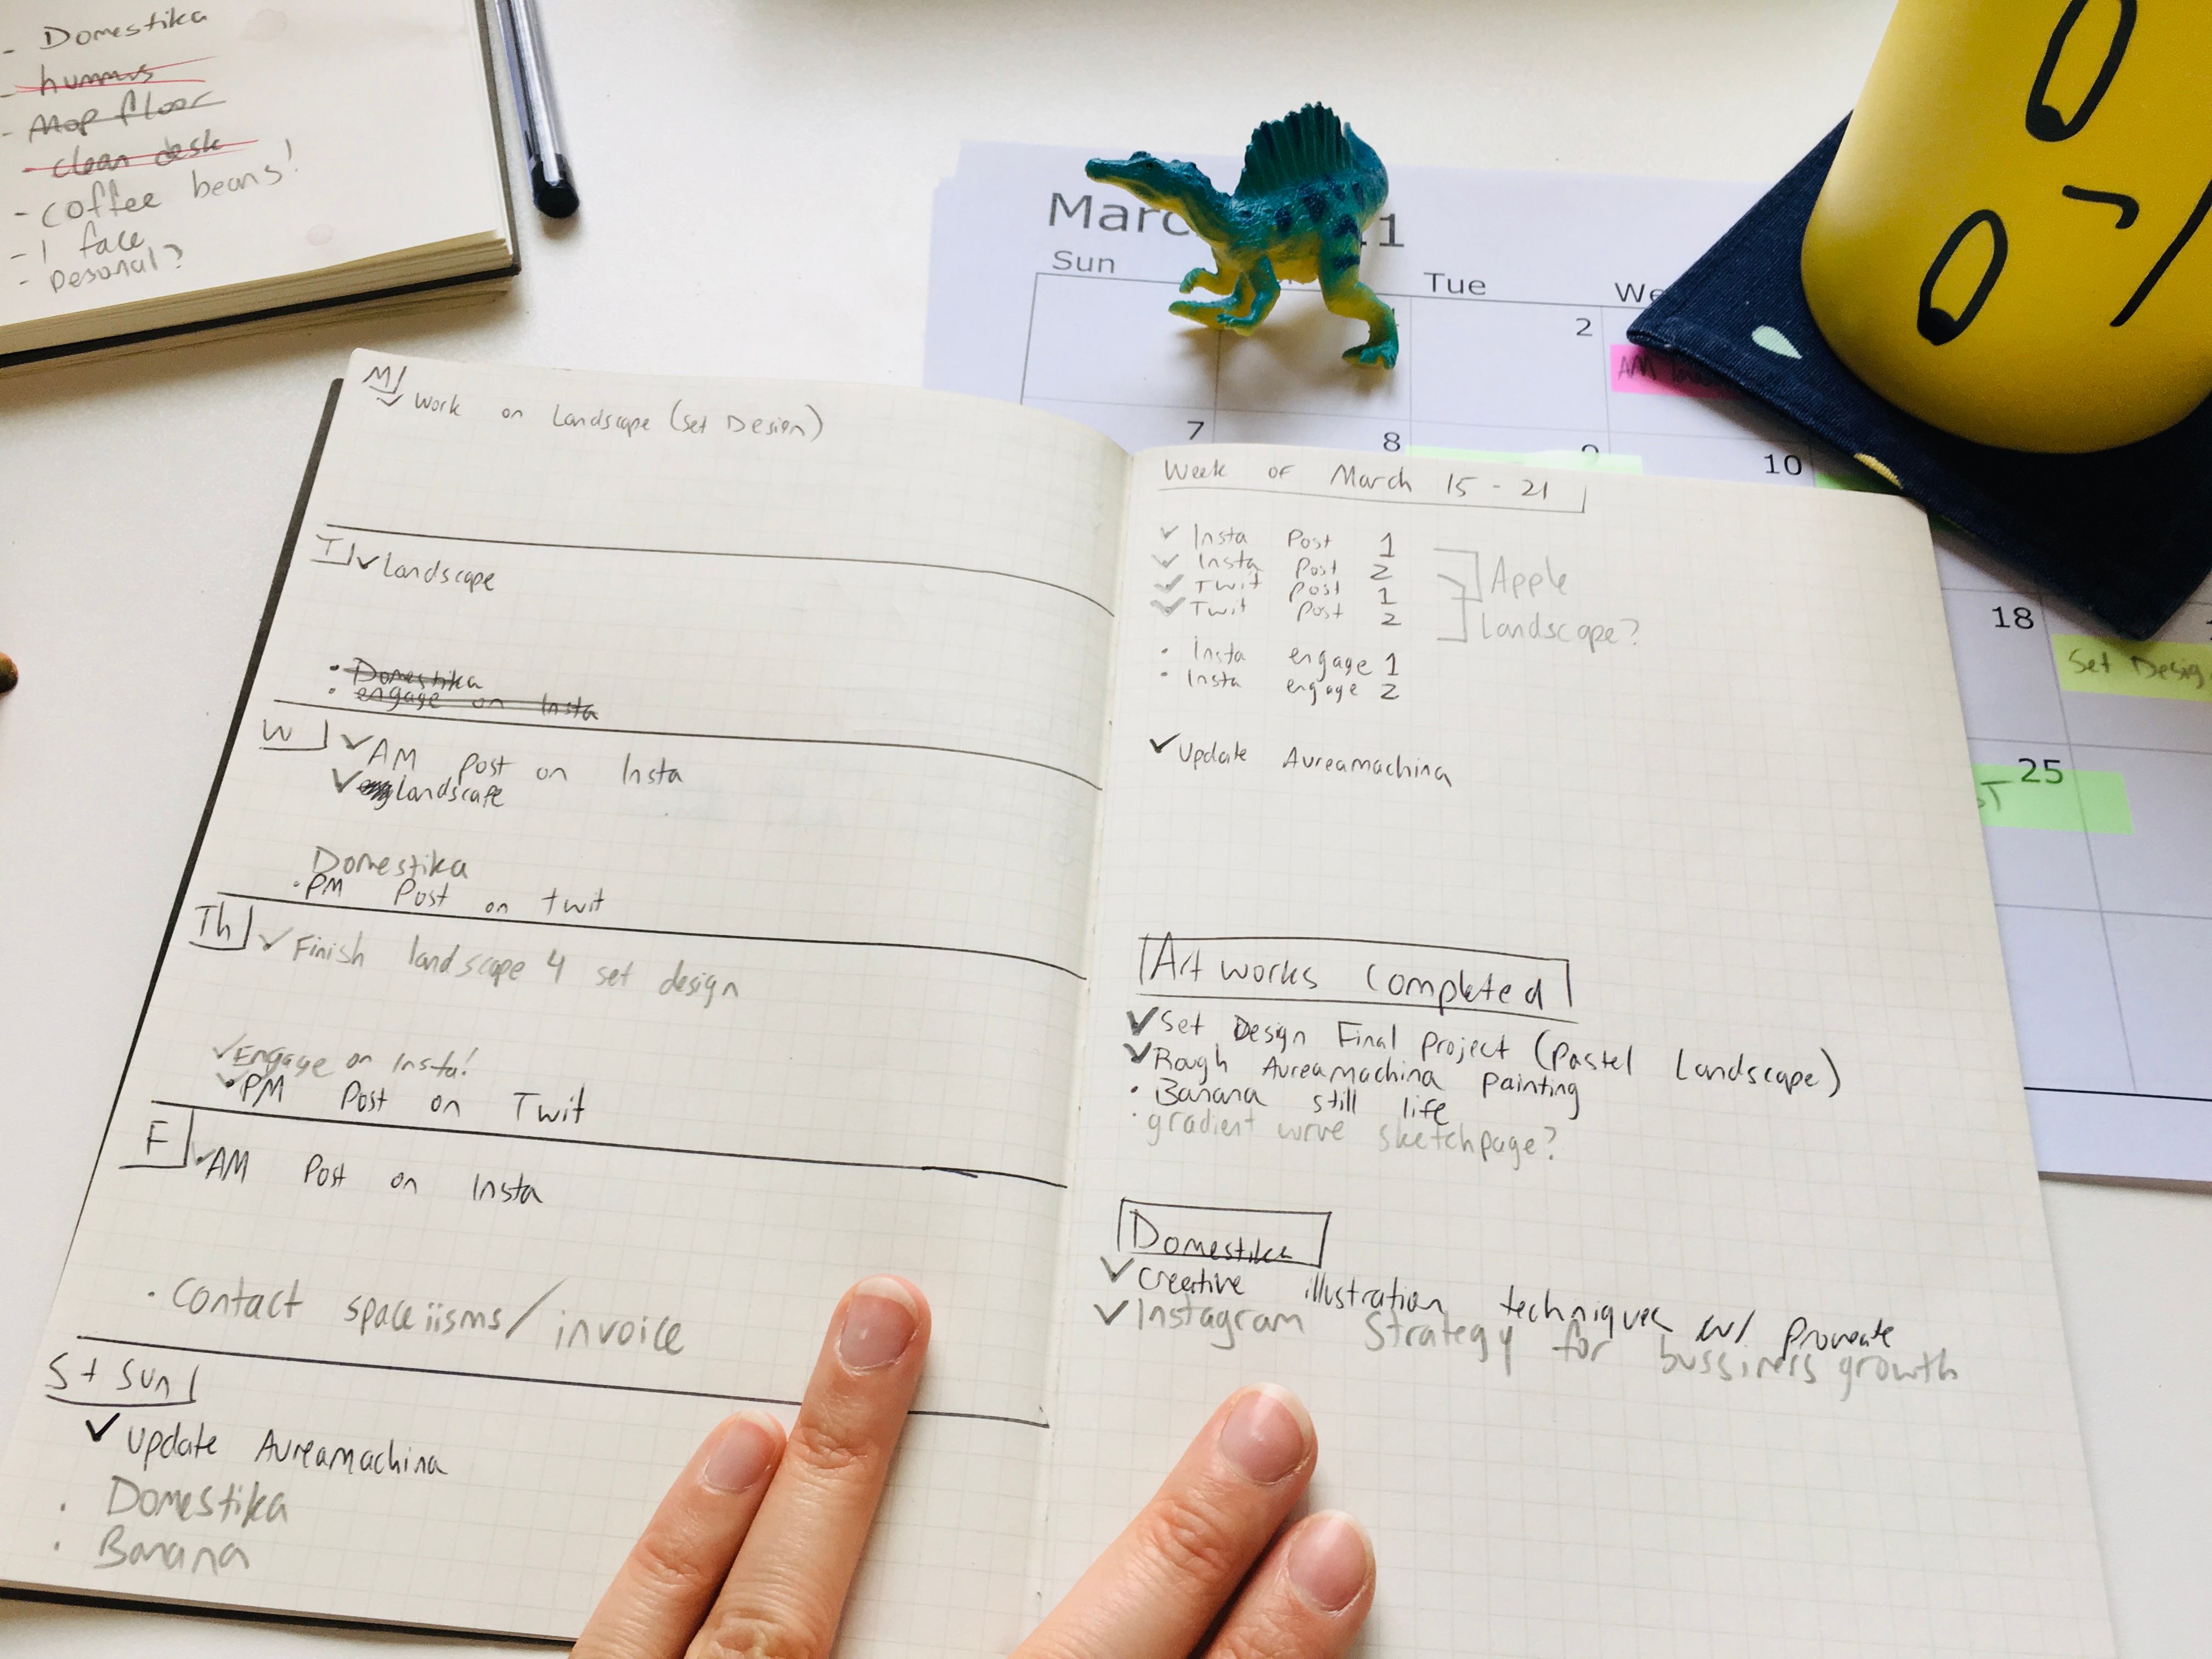 - Domestika
- hummus
- Mop floor
- clean desk
- coffee beans!
- 1 face
- Pesonal?
Marc 1
Sun Tue We
2
AM
7 8 9 10
18
Set Design
25
ST
M
✓ Work on Landscape (Set Design)
T ✓ Landscape
• Domestika
• engage on Insta
W ✓ AM Post on Insta
✓ Landscape
Domestika
• PM Post on twit
Th ✓ Finish landscape 4 set design
✓ Engage on Insta!
✓ • PM Post on Twit
F • AM Post on Insta
• Contact spaceiisms/invoice
S + Sun
✓ Update Aureamachina
• Domestika
• Banana
Week of March 15 - 21
✓ Insta Post 1
✓ Insta Post 2
✓ Twit Post 1
✓ Twit Post 2
Apple
Landscape?
• Insta engage 1
• Insta engage 2
✓ Update Aureamachina
Art works Completed
✓ Set Design Final Project (Pastel Landscape)
✓ Rough Aureamachina painting
• Banana still life
• gradient wrve sketchpage?
Domestika
✓ Creative illustration techniques w/ Procreate
✓ Instagram Strategy for bussiness growth